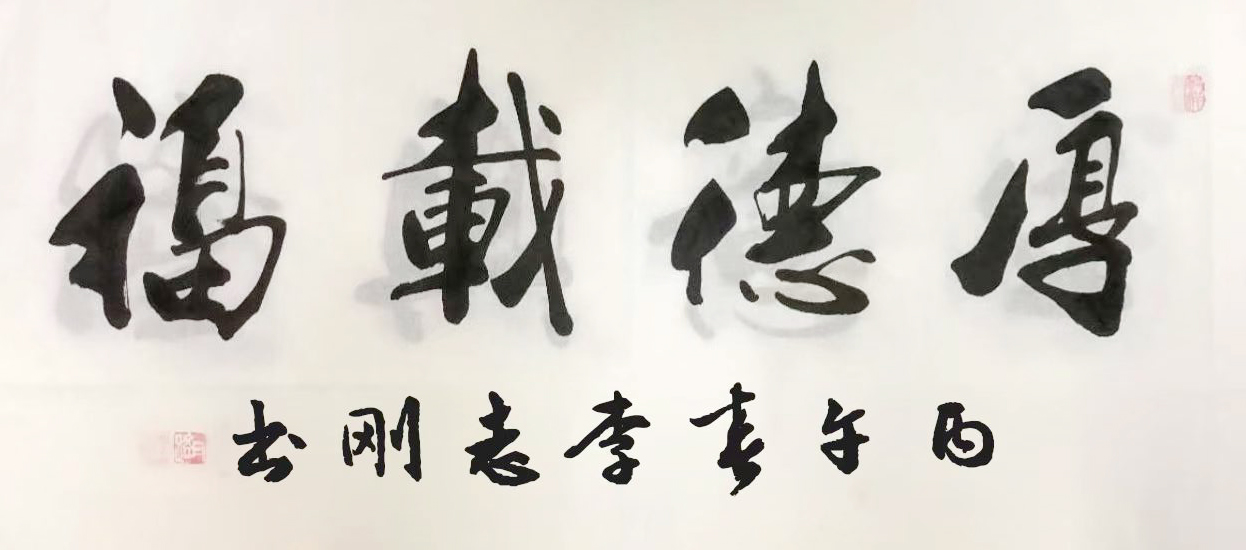 厚德載福
丙午春李志刚书